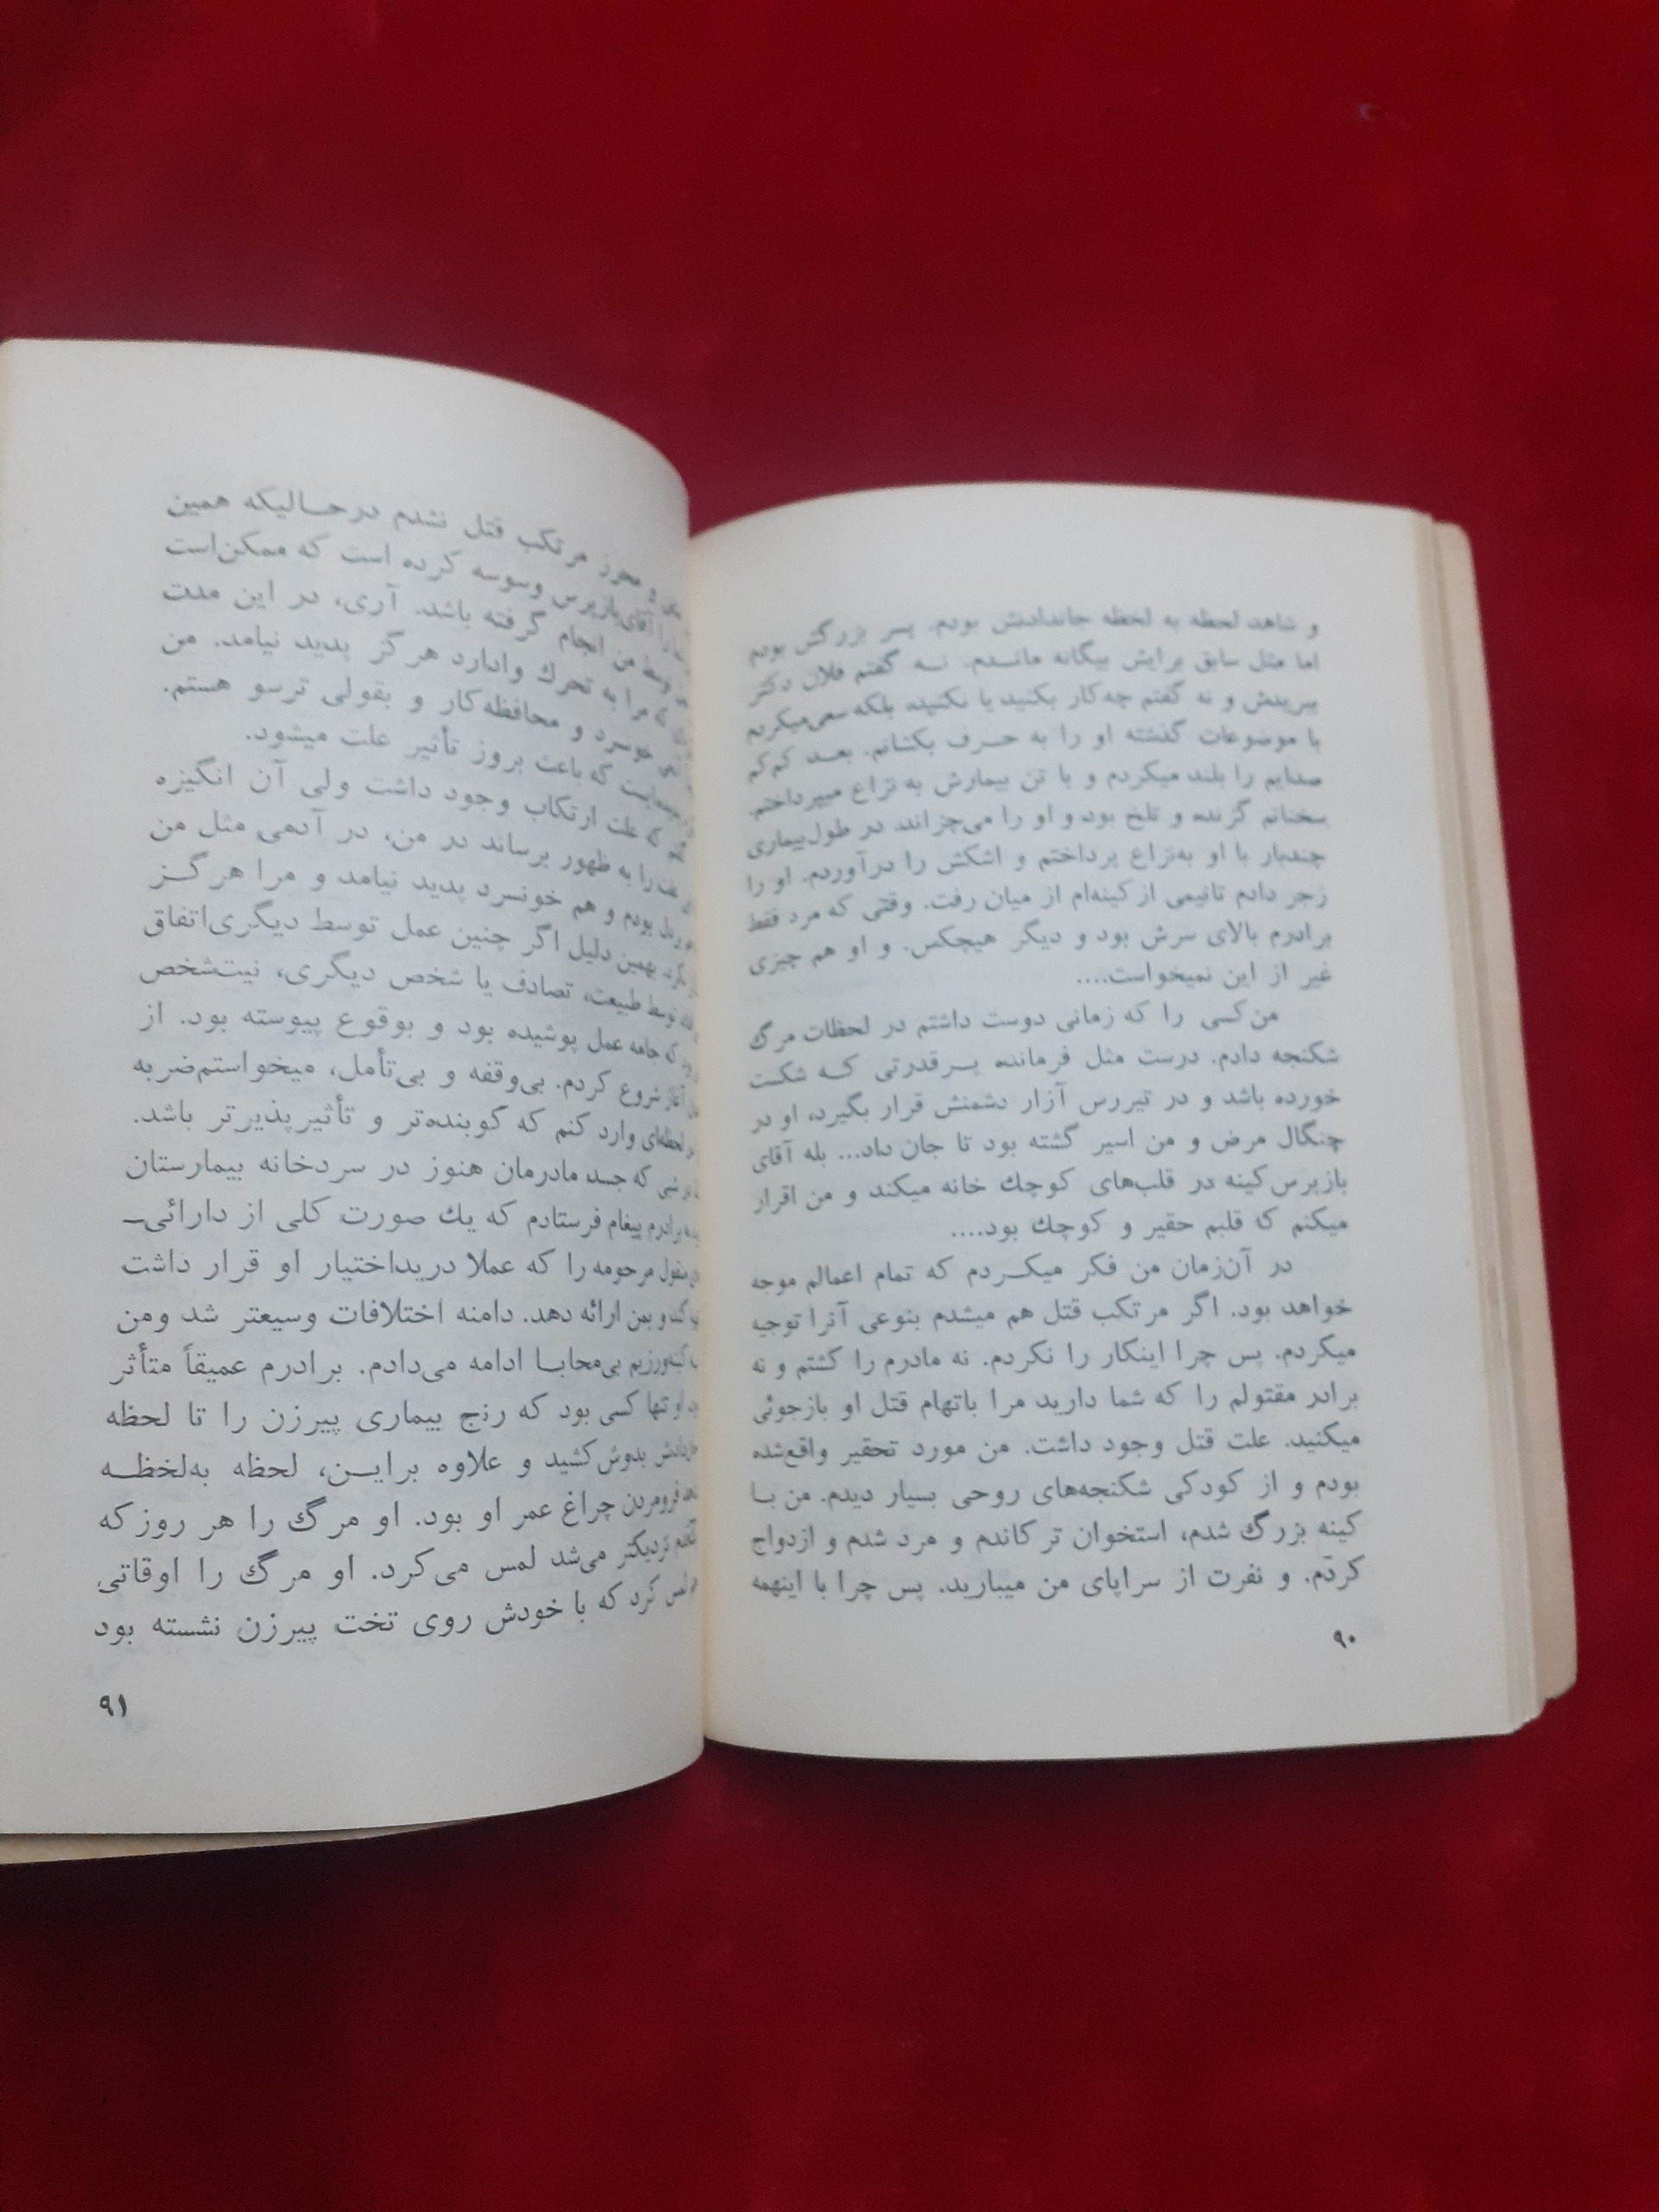 و شاهد لحظه به لحظه جاندادنش بودم. پسر بزرگش بودم
اما مثل سابق برایش بیگانه ماندم. نه گفتم فلان دکتر
ببریدش و نه گفتم چه‌کار بکنید یا نکنید، بلکه سعی‌میکردم
با موضوعات گذشته او را به حرف بکشانم. بعد کم‌کم
صدایم را بلند میکردم و با تن بیمارش به نزاع میپرداختم.
سخنانم گزنده و تلخ بود و او را می‌چزاند. در طول‌بیماری
چندبار با او به‌نزاع پرداختم و اشکش را درآوردم. او را
زجر دادم تانیمی از کینه‌ام از میان رفت. وقتی که مرد فقط
برادرم بالای سرش بود و دیگر هیچکس. و او هم چیزی
غیر از این نمیخواست....
من‌کسی را که زمانی دوست داشتم در لحظات مرگ
شکنجه دادم. درست مثل فرمانده پرقدرتی که شکست
خورده باشد و در تیررس آزار دشمنش قرار بگیرد، او در
چنگال مرض و من اسیر گشته بود تا جان داد... بله آقای
بازپرس‌کینه در قلب‌های کوچك خانه میکند و من اقرار
میکنم که قلبم حقیر و کوچك بود....
در آن‌زمان من فکر میکردم که تمام اعمالم موجه
خواهد بود. اگر مرتکب قتل هم میشدم بنوعی آنرا توجیه
میکردم. پس چرا اینکار را نکردم. نه مادرم را کشتم و نه
برادر مقتولم را که شما دارید مرا باتهام قتل او بازجوئی
میکنید. علت قتل وجود داشت. من مورد تحقیر واقع‌شده
بودم و از کودکی شکنجه‌های روحی بسیار دیدم. من با
کینه بزرگ شدم، استخوان ترکاندم و مرد شدم و ازدواج
کردم. و نفرت از سراپای من میبارید. پس چرا با اینهمه
۹۰
و محرز مرتکب قتل نشدم درحالیکه همین
آقای‌بازپرس وسوسه کرده است که ممکن‌است
توسط من انجام گرفته باشد. آری، در این مدت
که مرا به تحرك وادارد هرگز پدید نیامد. من
خونسرد و محافظه‌کار و بقولی ترسو هستم.
که باعث بروز تأثیر علت میشود.
که علت ارتکاب وجود داشت ولی آن انگیزه
علت را به ظهور برساند در من، در آدمی مثل من
بودم و هم خونسرد پدید نیامد و مرا هرگز
بهمین دلیل اگر چنین عمل توسط دیگری‌اتفاق
توسط طبیعت، تصادف یا شخص دیگری، نیت‌شخص
که جامه عمل پوشیده بود و بوقوع پیوسته بود. از
آغاز شروع کردم. بی‌وقفه و بی‌تأمل، میخواستم‌ضربه
لحظه‌ای وارد کنم که کوبنده‌تر و تأثیرپذیرتر باشد.
شبی که جسد مادرمان هنوز در سردخانه بیمارستان
برادرم پیغام فرستادم که یك صورت کلی از دارائی‌ـ
منقول مرحومه را که عملا دریداختیار او قرار داشت
کند و بمن ارائه دهد. دامنه اختلافات وسیعتر شد ومن
کینه‌ورزیم بی‌محابا ادامه می‌دادم. برادرم عمیقاً متأثر
او تنها کسی بود که رنج بیماری پیرزن را تا لحظه
بدوش کشید و علاوه براین، لحظه به‌لحظه
فرومردن چراغ عمر او بود. او مرگ را هر روز که
نزدیکتر می‌شد لمس می‌کرد. او مرگ را اوقاتی
لمس کرد که با خودش روی تخت پیرزن نشسته بود
۹۱